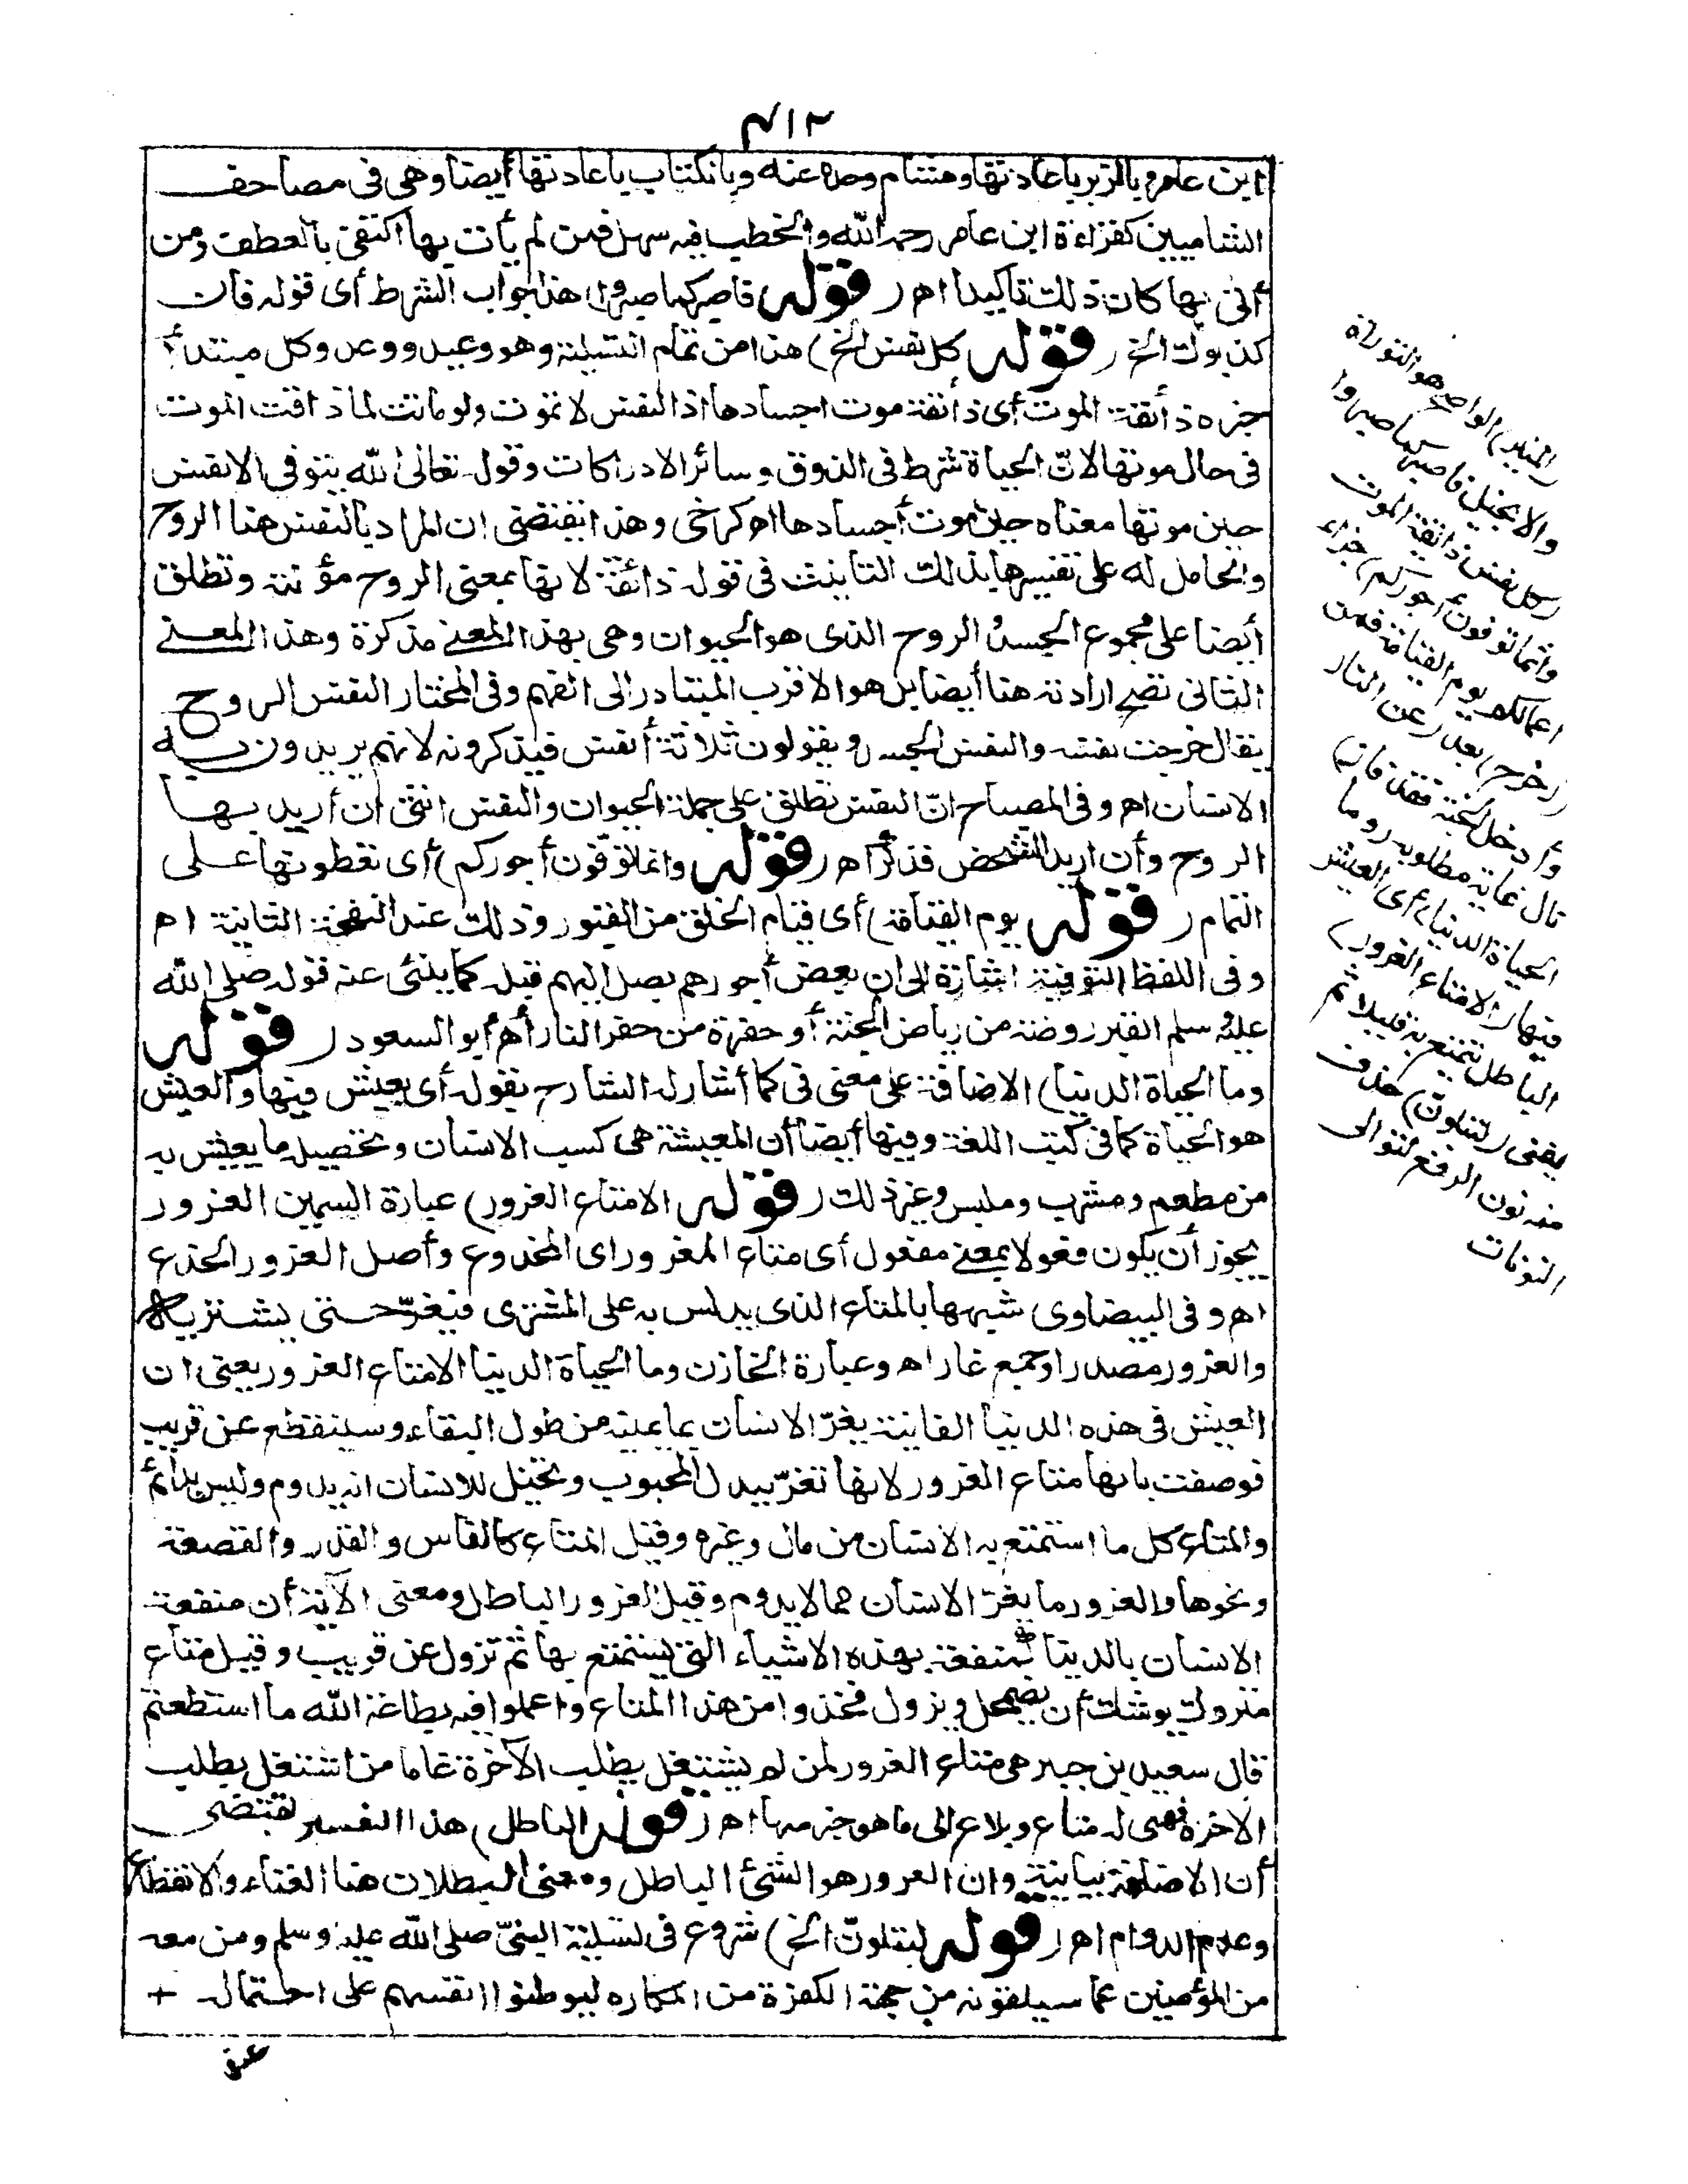 ٤١٢
ابن عامر وبالزبر باعادتها وهشام وحده عنه وبالكتاب باعادتها أيضا وهى فى مصاحف
الشاميين كقراءة ابن عامر رحمه الله والخطب فيه سهل فمن لم يأت بها اكتفى بالعطف ومن
أتى بها كان ذلك تأكيدا اه ( قوله فاصبر كما صبروا) هذا جواب الشرط أى قوله فان
كذبوك الخ ( قوله كل نفس الخ) هذا من تمام التسلية وهو وعيد ووعد وكل مبتدأ
خبره ذائقة الموت أى ذائقة موت اجسادها اذ النفس لا تموت ولو ماتت لما ذاقت الموت
فى حال موتها لانّ الحياة شرط فى الذوق وسائر الادراكات وقوله تعالى الله يتوفى الانفس
حين موتها معناه حين موت أجسادها اه كرخى وهذا يقتضى ان المراد بالنفس هنا الروح
والحامل له على تفسيرها بذلك التانيث فى قوله ذائقة لانها بمعنى الروح مؤنثة وتطلق
أيضا على مجموع الجسد والروح الذى هو الحيوان وهى بهذا المعنى مذكرة وهذا المعنى
الثانى تصح ارادته هنا أيضا بل هو الاقرب المتبادر الى الفهم وفى المختار النفس الروح
يقال خرجت نفسه والنفس الجسد ويقولون ثلاثة أنفس فيذكرونه لانهم يريدون به
الانسان اه وفى المصباح انّ النفس تطلق على جملة الحيوان والنفس انثى ان أريد بها
الروح وأن اريد الشخص فذكر اه ( قوله وانما توفون أجوركم) أى تعطونها على
التمام ( قوله يوم القيامة) أى قيام الخلق من القبور وذلك عند النفخة الثانية اه
وفى اللفظ التوفية اشارة الى ان بعض أجورهم يصل اليهم قبله كما ينبئ عنه قوله صلى الله
عليه سلم القبر روضة من رياض الجنة أو حفرة من حفر النار أه أبو السعود ( قوله
وما الحياة الدنيا) الاضافة على معنى فى كما أشار له الشارح بقوله أى يعيش فيها والعيش
هو الحياة كما فى كتب اللغة وفيها أيضا أن المعيشة هى كسب الانسان وتحصيله ما يعيش به
من مطعم ومشرب وملبس وغير ذلك ( قوله الا متاع الغرور) عبارة السمين الغرور
يجوز أن يكون فعولا بمعنى مفعول أى متاع المغرور اى المخدوع وأصل الغرور الخدع
اه وفى البيضاوى شبهها بالمتاع الذى يدلس به على المشترى فيغرّ حتى يشتريه
والغرور مصدر اوجمع غار اه وعبارة الخازن وما الحياة الدنيا الا متاع الغرور يعنى ان
العيش فى هذه الدنيا الفانية يغرّ الانسان بما يمنيه من طول البقاء وسينقطع عن قريب
فوصفت بانها متاع الغرور لانها تغرّ ببذل المحبوب وتخيل للانسان انه يدوم وليس بدائم
والمتاع كل ما استمتع به الانسان من مال وغيره وقيل المتاع كالفاس والقدر والقصعة
ونحوها والغرور ما يغرّ الانسان مما لا يدوم وقيل الغرور الباطل ومعنى الآية أن منفعة
الانسان بالدنيا كمنفعة بهذه الاشياء التى يستمتع بها ثم تزول عن قريب وقيل متاع
متروك يوشك أن يضمحل ويزول فخذوا من هذا المتاع واعملوا فيه بطاعة الله ما استطعتم
قال سعيد بن جبير هى متاع الغرور لمن لم يشتغل بطلب الآخرة فاما من اشتغل بطلب
الاخرة فهى له متاع وبلاغ الى ما هو خير منها اه ( قوله الباطل) هذا التفسير يقتضى
أن الاضافة بيانية وان الغرور هو الشئ الباطل ومعنى البطلان هنا الفناء والانقطاع
وعدم الدوام اه ( قوله لتبلونّ الخ) شروع فى تسلية النبىّ صلى الله عليه وسلم ومن معه
من المؤمنين عما سيلقونه من جهة الكفرة من المكاره ليوطنوا انفسهم على احتمال +
(المنير) الواضح هو التوراة
والانجيل فاصبر كما صبروا
(كل نفس ذائقة الموت
وانما توفون أجوركم) جزاء
اعمالكم (يوم القيامة فمن
زحزح) بعد (عن النار
وأدخل الجنة فقد فاز)
نال غاية مطلوبه (وما
الحياة الدنيا) أى العيش
فيها (الا متاع الغرور)
الباطل يتمتع به قليلا ثم
يفنى (لتبلونّ) حذف
منه نون الرفع لتوالى
النونات